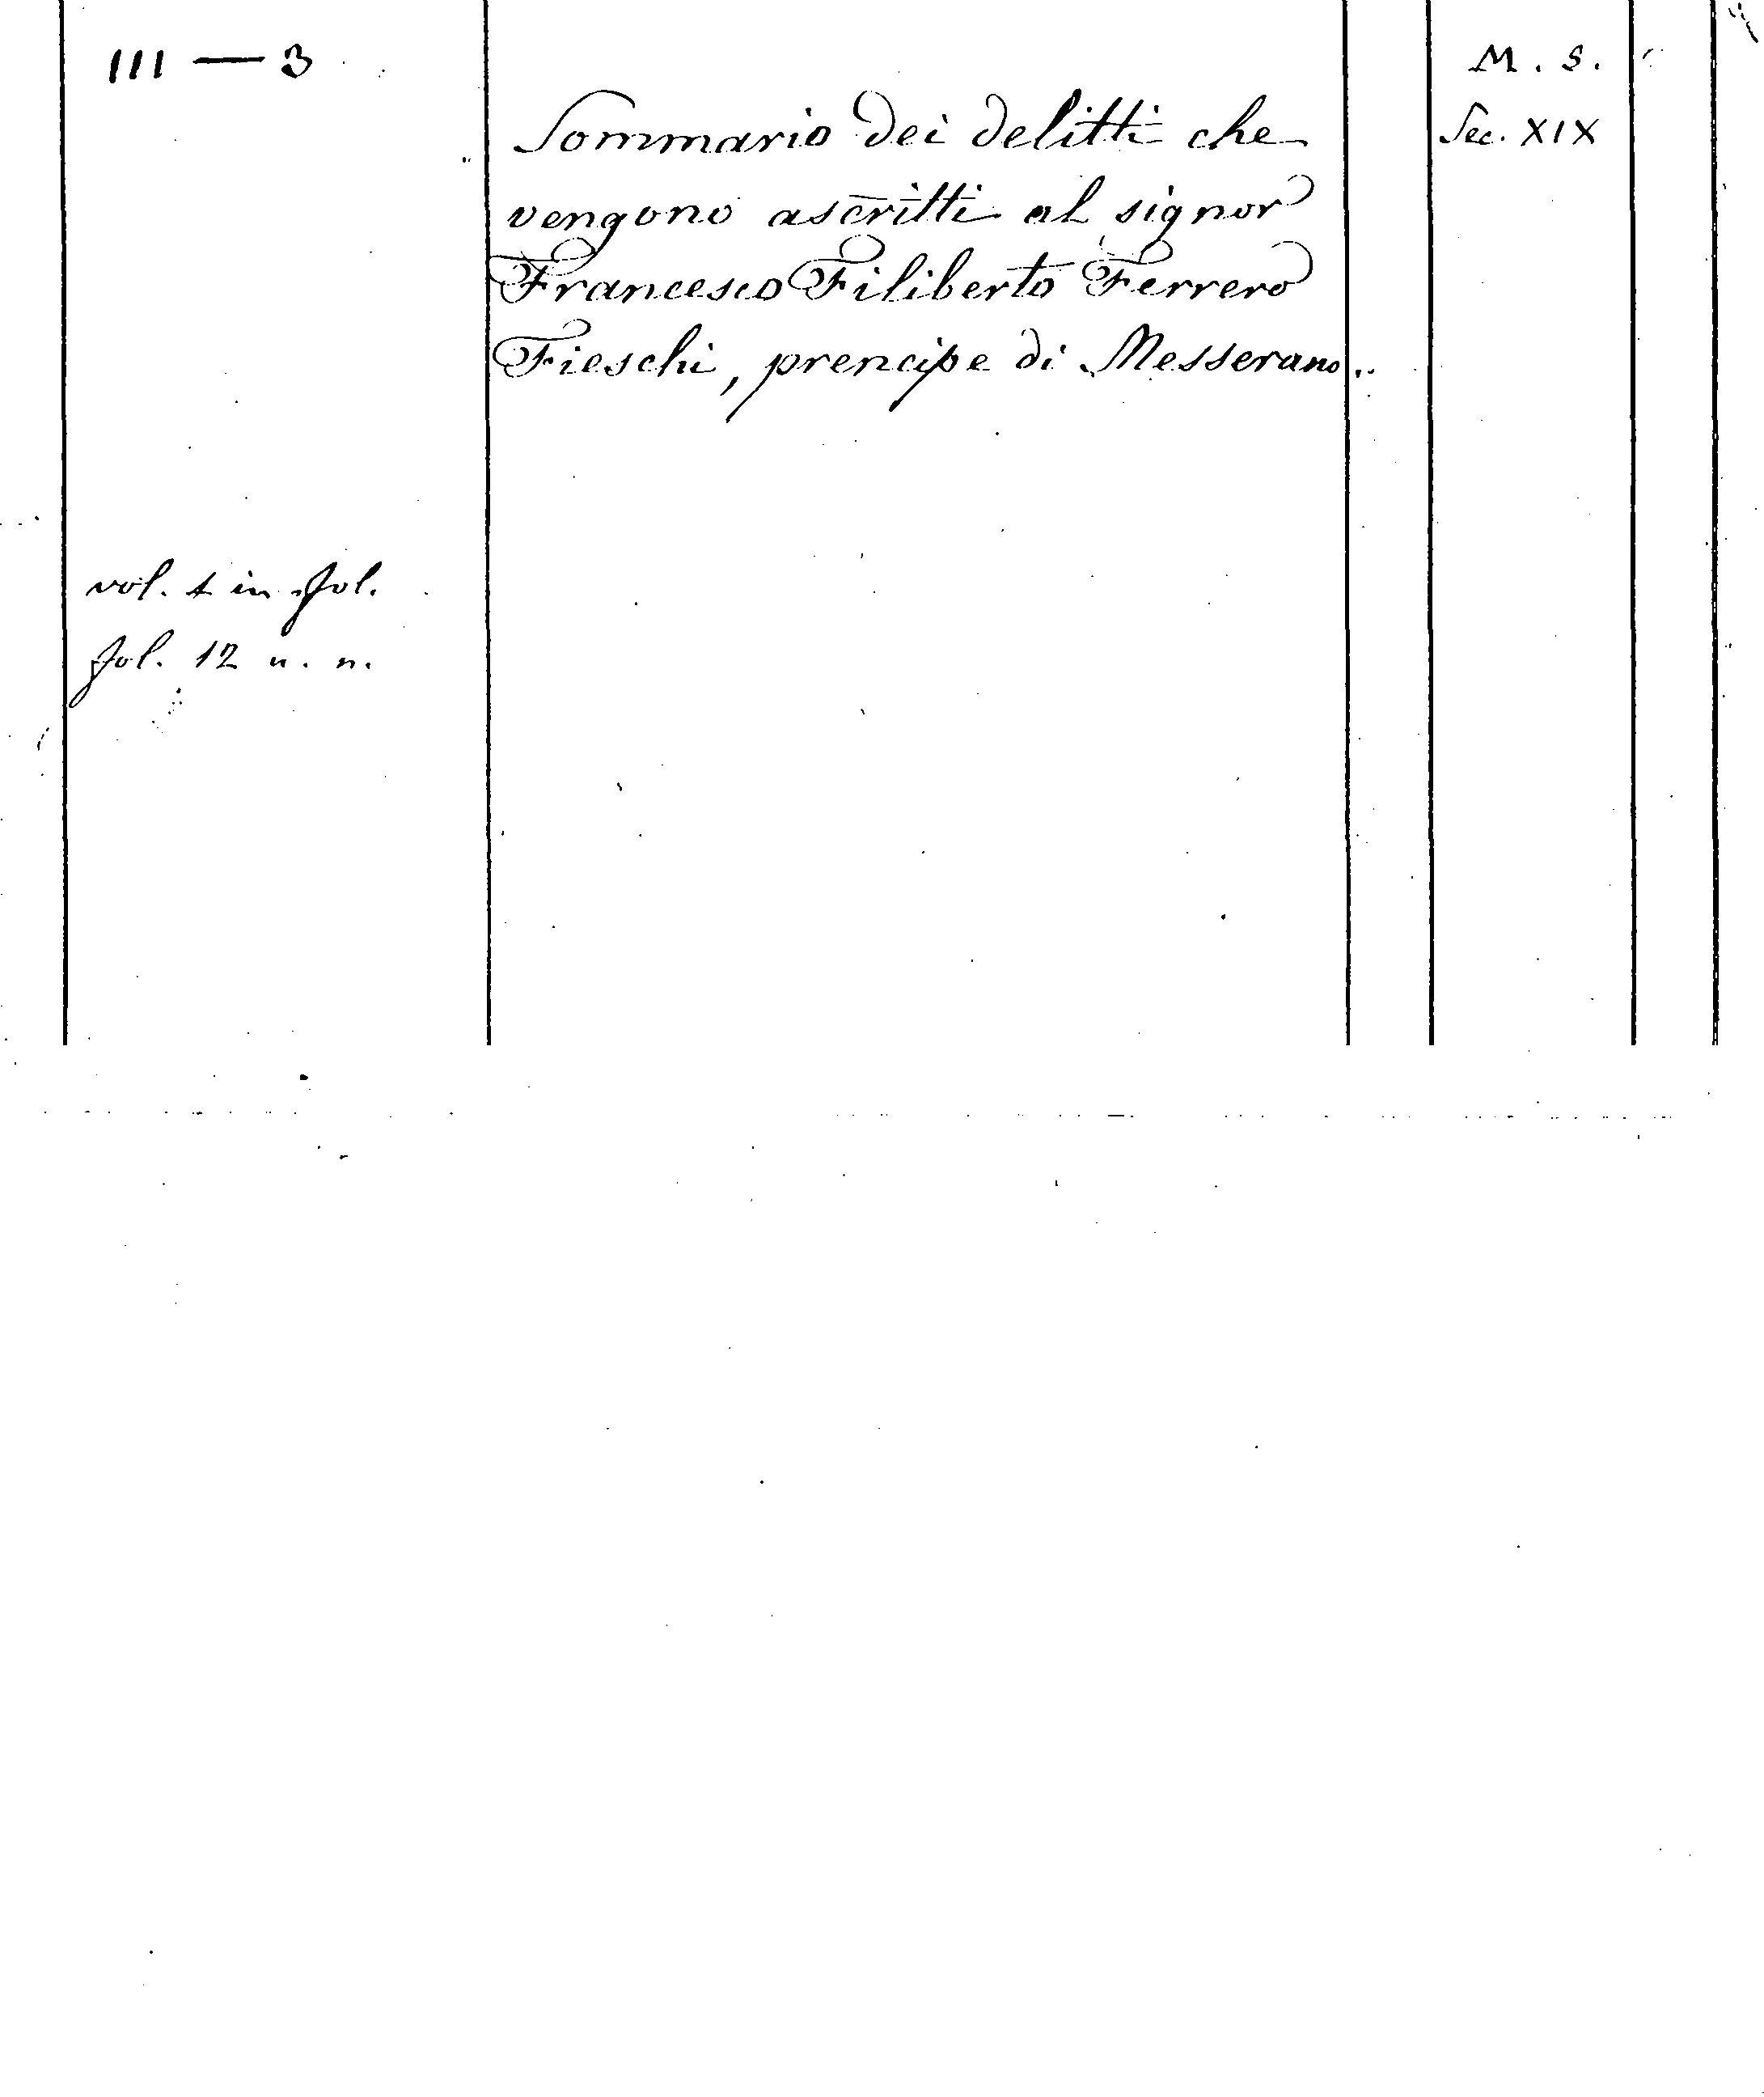 III — 3
Sommario dei delitti che
vengono ascritti al signor
Francesco Filiberto Ferrero
Fieschi, prencipe di Messerano.
M. S.
Sec. XIX
vol. 1 in fol.
fol. 12 n. n.